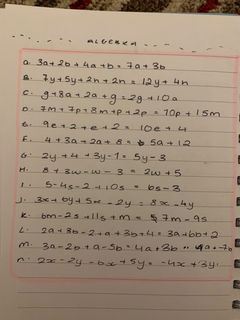 ALGEBRA
a. 3a+2b+4a+b = 7a+3b
B. 7y+5y+2n+2n = 12y+4n
C. g+8a+2a+g = 2g+10a
D. 7m+7p+8m+p+2p = 10p+15m
E. 9e+2+e+2 = 10e+4
F. 4+3a+2a+8 = 5a+12
G. 2y+4+3y-1 = 5y-3
H. 8+3w-w-3 = 2w+5
I. 5-4s-2+10s = 6s-3
J. 3x+6y+5x-2y = 8x-4y
K. 6m-2s+11s+m = 7m-9s
L. 2a+3b-2+a+3b+4 = 3a+6b+2
M. 3a-2b+a-5b = 4a+3b
N. 2x-2y-6x+5y = -4x+3y